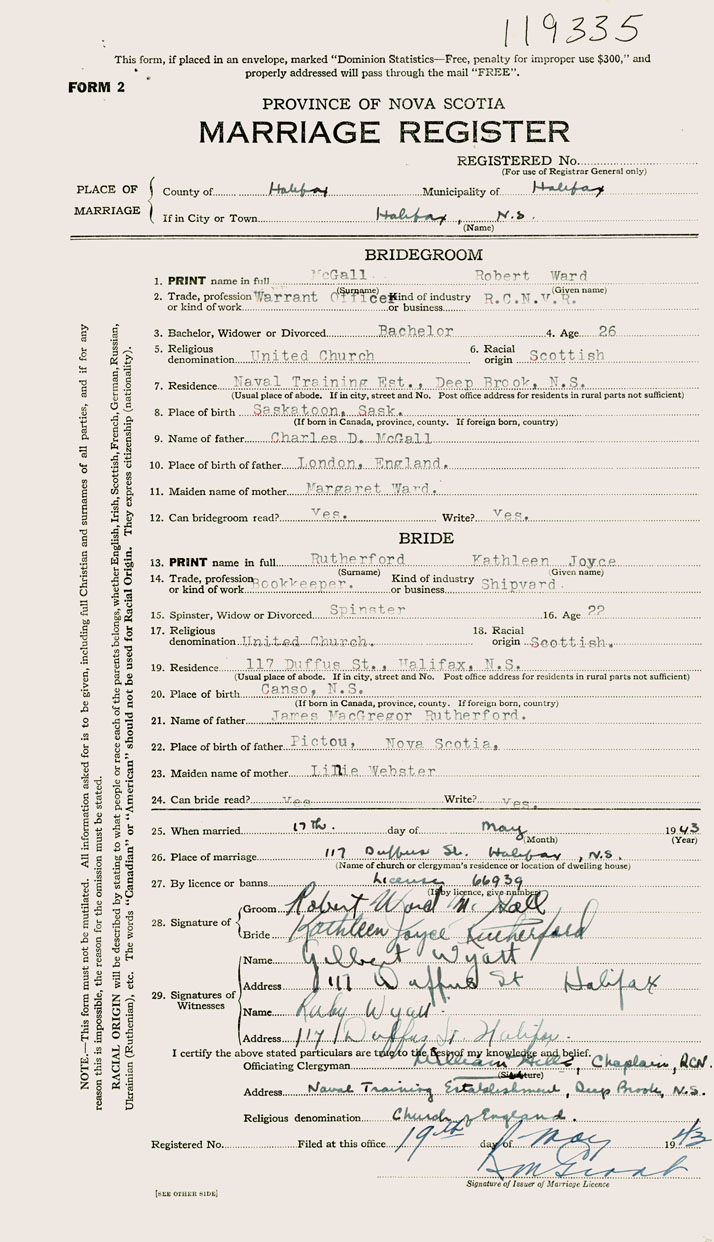 119335
This form, if placed in an envelope, marked "Dominion Statistics—Free, penalty for improper use $300," and
properly addressed will pass through the mail "FREE".
FORM 2
PROVINCE OF NOVA SCOTIA
MARRIAGE REGISTER
REGISTERED No.
(For use of Registrar General only)
PLACE OF MARRIAGE
County of Halifax Municipality of Halifax
If in City or Town Halifax, N.S.
(Name)
BRIDEGROOM
1. PRINT name in full McGall Robert Ward
(Surname) (Given name)
2. Trade, profession or kind of work Warrant Officer Kind of industry or business R.C.N.V.R.
3. Bachelor, Widower or Divorced Bachelor 4. Age 26
5. Religious denomination United Church 6. Racial origin Scottish
7. Residence Naval Training Est., Deep Brook, N.S.
(Usual place of abode. If in city, street and No. Post office address for residents in rural parts not sufficient)
8. Place of birth Saskatoon, Sask.
(If born in Canada, province, county. If foreign born, country)
9. Name of father Charles D. McGall
10. Place of birth of father London, England.
11. Maiden name of mother Margaret Ward.
12. Can bridegroom read? Yes. Write? Yes.
BRIDE
13. PRINT name in full Rutherford Kathleen Joyce
(Surname) (Given name)
14. Trade, profession or kind of work Bookkeeper. Kind of industry or business Shipyard
15. Spinster, Widow or Divorced Spinster 16. Age 22
17. Religious denomination United Church. 18. Racial origin Scottish.
19. Residence 117 Duffus St., Halifax, N.S.
(Usual place of abode. If in city, street and No. Post office address for residents in rural parts not sufficient)
20. Place of birth Canso, N.S.
(If born in Canada, province, county. If foreign born, country)
21. Name of father James MacGregor Rutherford.
22. Place of birth of father Pictou, Nova Scotia,
23. Maiden name of mother Lillie Webster
24. Can bride read? Yes Write? Yes.
25. When married 17th. day of May 1943
(Month) (Year)
26. Place of marriage 117 Duffus St. Halifax, N.S.
(Name of church or clergyman's residence or location of dwelling house)
27. By licence or banns License 66939
(If by licence, give number)
28. Signature of
Groom Robert Ward McGall
Bride Kathleen Joyce Rutherford
29. Signatures of Witnesses
Name Gilbert Wyatt
Address 117 Duffus St Halifax
Name Ruby Wyatt
Address 117 Duffus St. Halifax.
I certify the above stated particulars are true to the best of my knowledge and belief.
Officiating Clergyman William Hills, Chaplain, RCN.
(Signature)
Address Naval Training Establishment, Deep Brook, N.S.
Religious denomination Church of England.
Registered No. Filed at this office 19th day of May 1943
Signature of Issuer of Marriage Licence
[SEE OTHER SIDE]
NOTE.—This form must not be mutilated. All information asked for is to be given, including full Christian and surnames of all parties, and if for any
reason this is impossible, the reason for the omission must be stated.
RACIAL ORIGIN will be described by stating to what people or race each of the parents belongs, whether English, Irish, Scottish, French, German, Russian,
Ukrainian (Ruthenian), etc. The words "Canadian" or "American" should not be used for Racial Origin. They express citizenship (nationality).